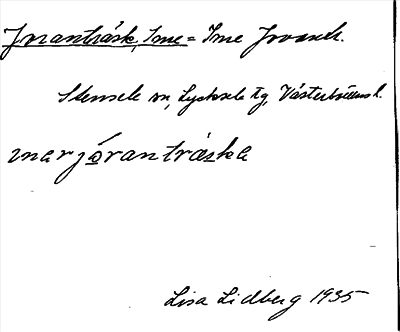 Joranträsk, Sme = Sme Joransk.
Stensele sn, Lycksele tg, Västerbottens l.
marjoranträska
Lisa Lidberg 1935